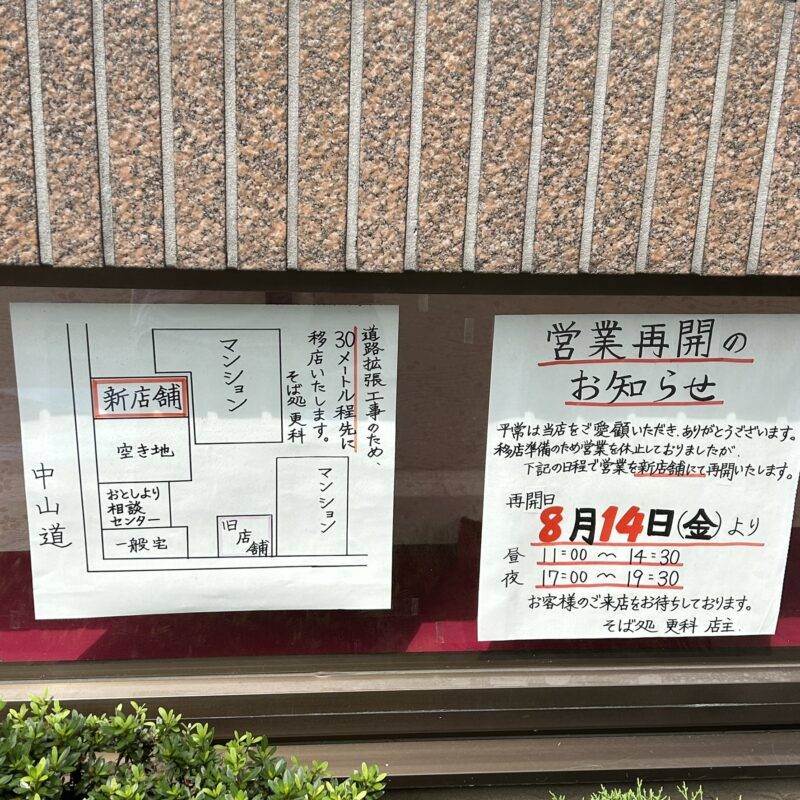 道路拡張工事のため、
30メートル程先に
移店いたします。
そば処 更科
マンション
新店舗
空き地
おとしより
相談
センター
一般宅
中山道
旧店舗
マンション
営業再開の
お知らせ
平常は当店をご愛顧いただき、ありがとうございます。
移店準備のため営業を休止しておりましたが、
下記の日程で営業を新店舗にて再開いたします。
再開日
8月14日(金)より
昼 11:00 〜 14:30
夜 17:00 〜 19:30
お客様のご来店をお待ちしております。
そば処 更科 店主.